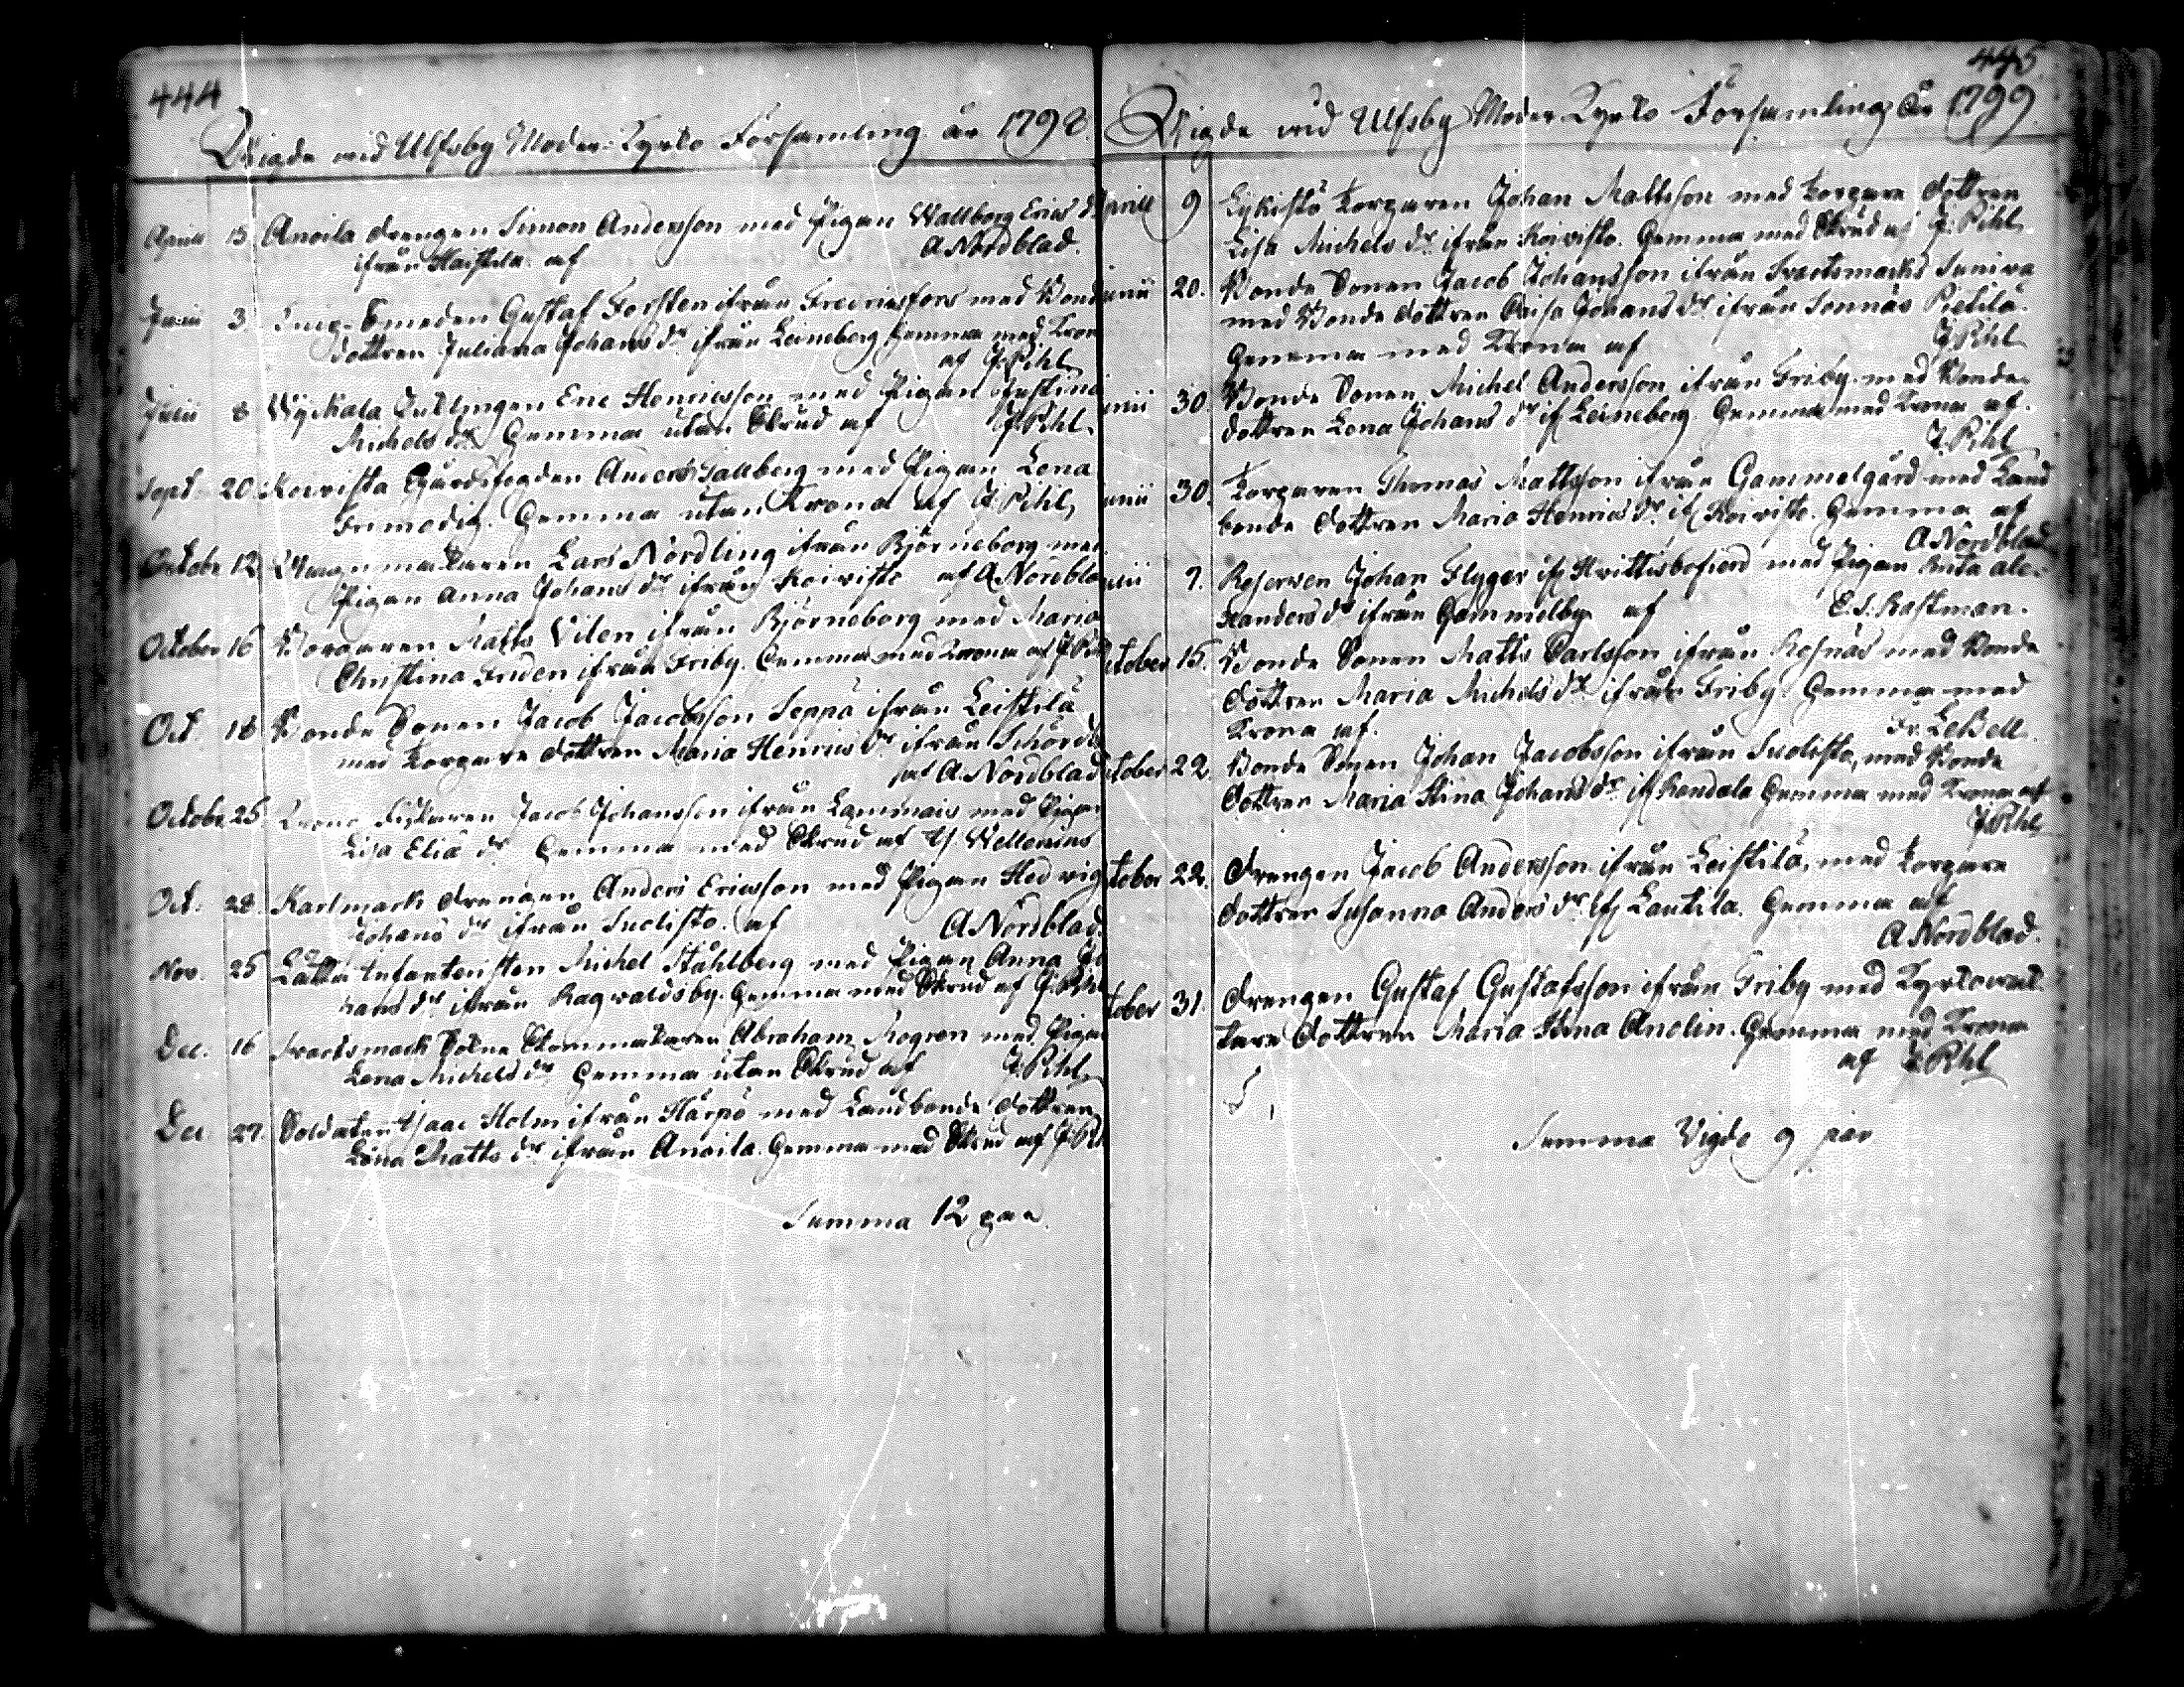 444
Wigde wid Ulfsby Moder Kyrko Församling år 1798.
Aprill 15 Anoila drengen Simon Andersson med Pigan Wallborg Erics dr
ifrån Haistila af A Nordblad.
Junii 3 smeden Gustaf Forsten ifrån Fredriksfors med Bonde
dottren Juliana Johans dr ifrån Leineberg hemma med Krona
af J. Pihl
Julii 8 Wyckala Enklingen Eric Henricsson med Pigan Justina
Michels dr Hemma utan Skrud af J. Pihl.
Sept 20 Koivista Gårdsfogden Anders Tallberg med Pigan Lena
Frimodig. Hemma utan Krona af J. Pihl
Octobr 12 makaren Lars Nordling ifrån Björneborg med
Pigan Anna Johans dr ifrån Koivisto af A Nordblad
October 16 Borgaren Matts Vilen ifrån Björneborg med Maria
Christina Friden ifrån Friby. Hemma med Krona af J. Pihl
Oct. 18 Bonde Sonen Jacob Jacobsson Seppä ifrån Leistilä
med Torpare dottren Maria Henrics dr ifrån
af A Nordblad
Octobr 25 Krono Fiskaren Jacob Johansson ifrån Lammais med Pigan
Lisa Eliæ dr Hemma med Skrud af Wellenius
Oct. 28. Karlmark drengen Anders Ericsson med Pigan Hedvig
Johans dr ifrån Suolisto. af A Nordblad.
Nov. 25 Lätta Infanteristen Michel Ståhlberg med Pigan Anna Jo
hans dr ifrån Ragwaldsby. Hemma med Skrud af J. Pihl
Dec. 16 Svartsmark Sockne Skomakaren Abraham Mogren med Pigan
Lena Michels dr Hemma utan Skrud af J. Pihl
Dec 27. Soldaten Isaac Holm ifrån Harpö med Landbonde dottren
Lena Matts dr ifrån Anoila. Hemma med Skrud af J. Pihl
Summa 12 par.
445
Wigde wid Ulfsby Moder Kyrko Församling år 1799
prill 9 Torparen Johan Mattsson med Torpare dottren
Lisa Michels dr ifrån Koivisto. Hemma med Skrud af J. Pihl
unii 20. Bonde Sonen Jacob Johansson ifrån Svartsmarks Sunira
med Bonde dottren Caisa Johans dr ifrån Sonnäs Pietilä.
Hemma med Krona af J. Pihl
unii 30. Bonde Sonen Michel Andersson ifrån Friby med Bonde
dottren Lena Johans dr if Leineberg. Hemma med Krona af.
J. Pihl
unii 30. Torparen Thomas Mattsson ifrån Gammelgård med Land
bonde dottren Maria Henrics dr if Koivisto. Hemma af
A Nordblad
7. Reserven Johan Flyger if Hvittisbofierd med Pigan Anta Ale-
xanders dr ifrån Gammelby af E. S. Kastman.
ctober 15. Bonde Sonen Matts Carlsson ifrån Rosnäs med Bonde
dottren Maria Michels dr ifrån Friby. Hemma med
Krona af. Fr. LeBell.
ctober 22 Bonde Sonen Johan Jacobsson ifrån Suolisto, med Bonde
dottren Maria Stina Johans dr if Randala Hemma med Krona af
J. Pihl
ctober 22. drengen Jacob Andersson ifrån Leistilä, med Torpare
dottren Susanna Anders dr if Lautila. Hemma af
A Nordblad.
tober 31. drengen Gustaf Gustafsson ifrån Friby med Kyrkovak
tare dottren Maria Stina Anolin. Hemma med Krona
af J. Pihl
Summa Vigde 9 par